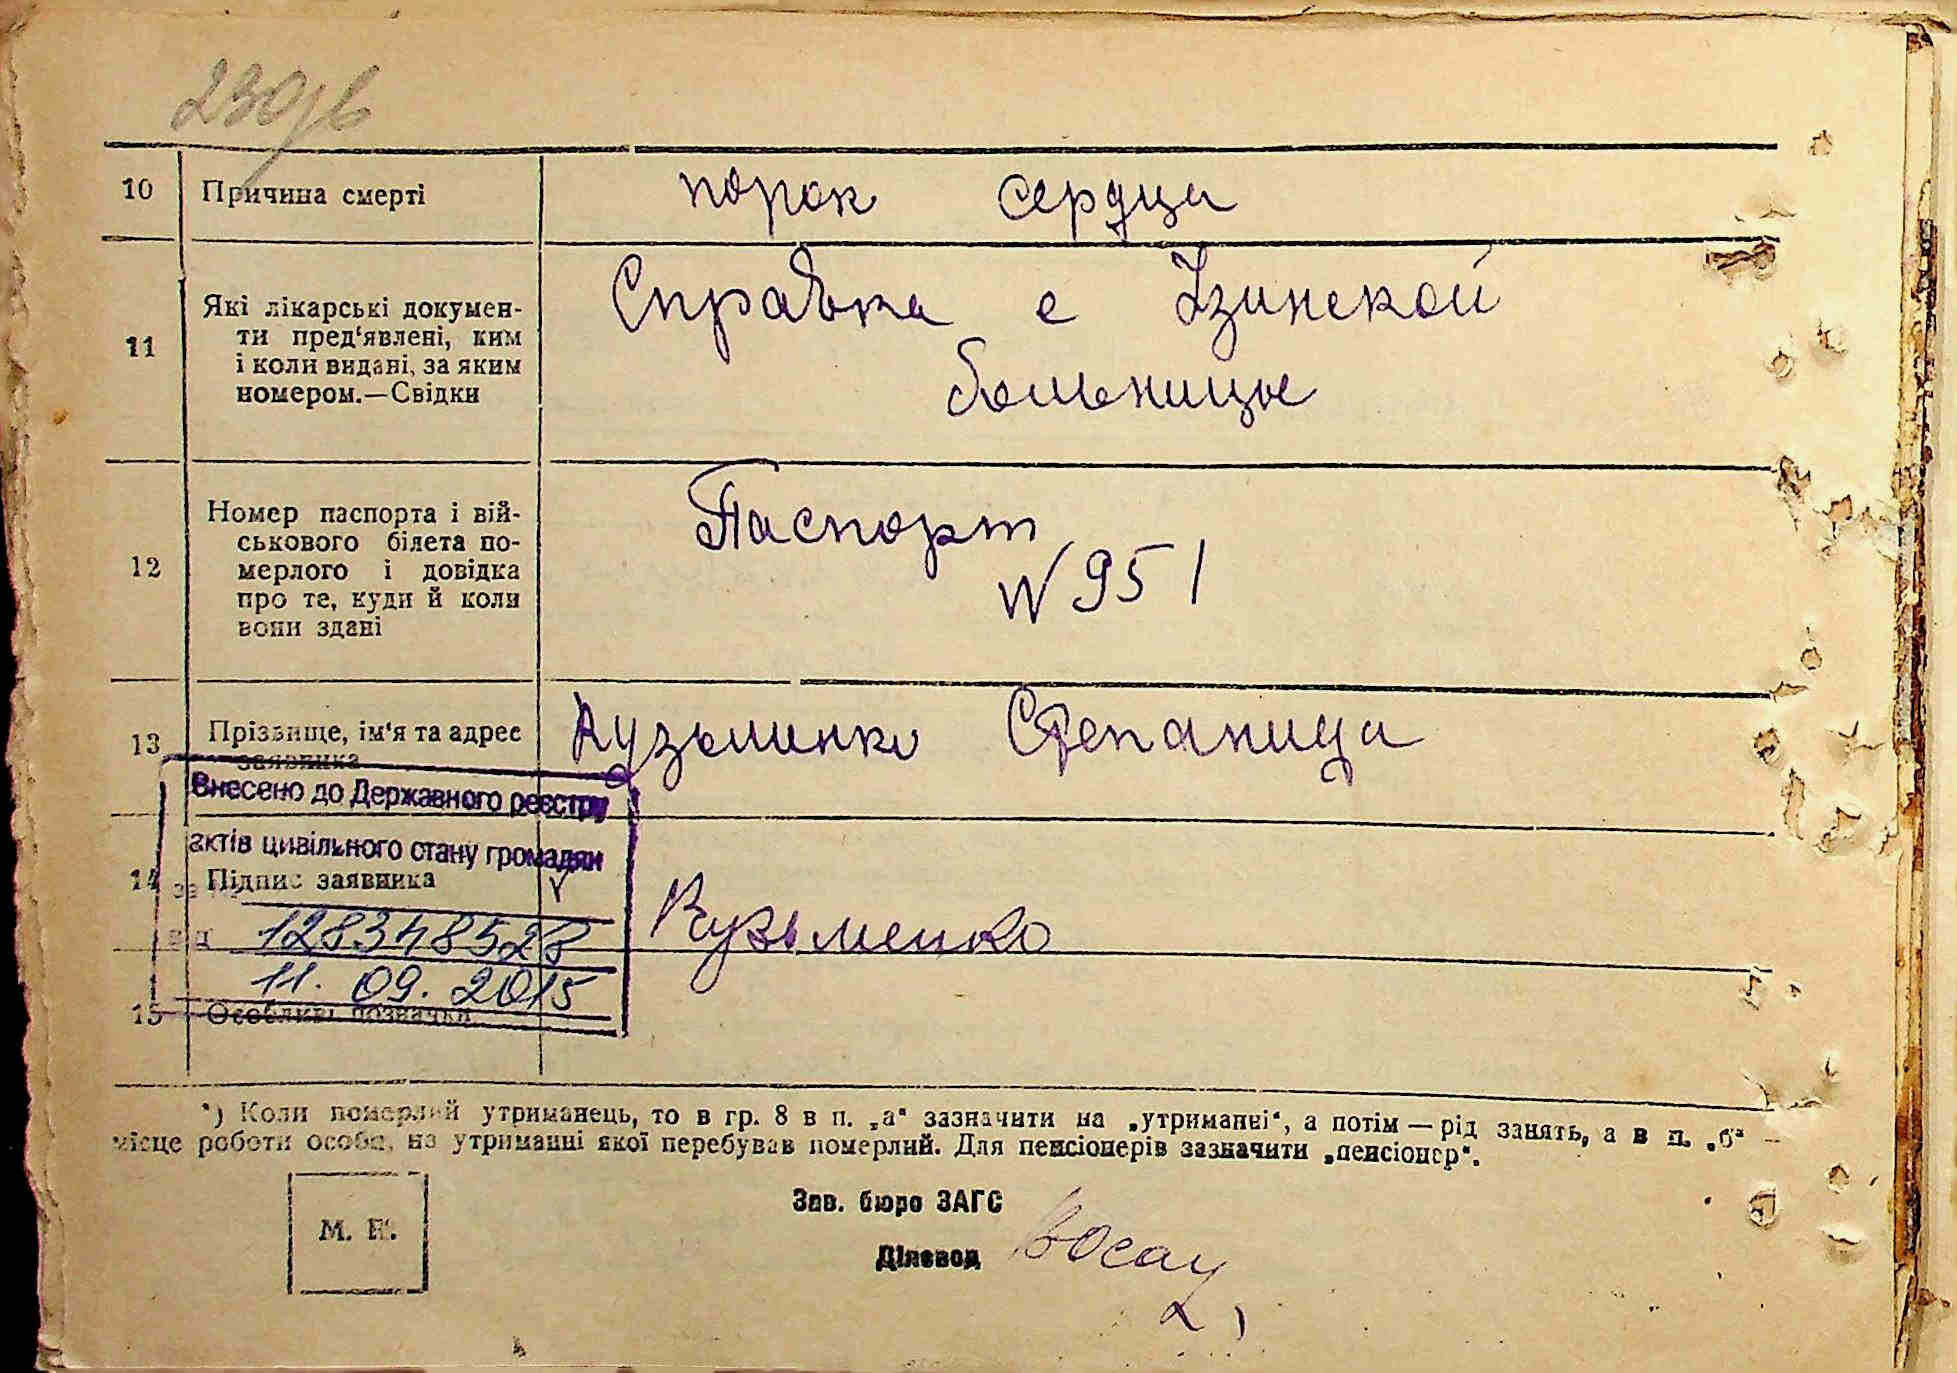 230зв
10 Причина смерті порок сердца
11 Які лікарські докумен-
ти пред'явлені, ким
і коли видані, за яким
номером.—Свідки
Справка с Узинской
больницы
12 Номер паспорта і вій-
ськового білета по-
мерлого і довідка
про те, куди й коли
вони здані
Паспорт
N 951
13 Прізвище, ім'я та адрес
заявника
Кузьминко Степанида
Внесено до Державного реєстру
актів цивільного стану громадян
14 Підпис заявника
Кузьменко
за №
128348528
від
11. 09. 2015
15 Особливі позначки
*) Коли померлий утриманець, то в гр. 8 в п. „а" зазначити на „утриманні", а потім — рід занять, а в п. „б" —
місце роботи особи, на утриманні якої перебував померлий. Для пенсіонерів зазначити „пенсіонер".
М. П.
Зав. бюро ЗАГС
Діловод